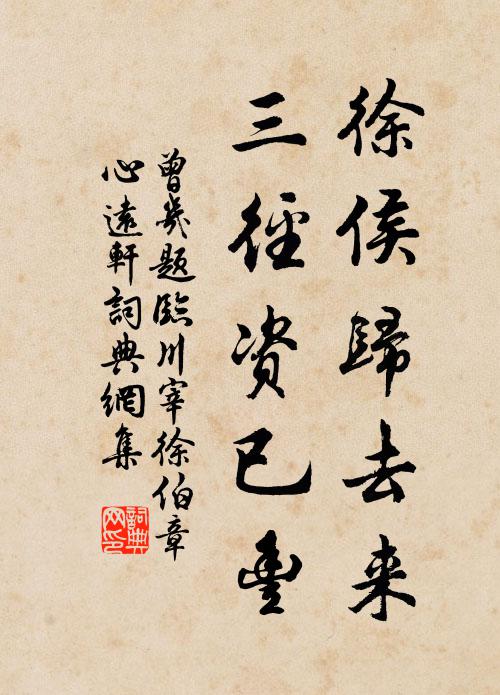 徐侯歸去来
三徑资已豐
曾幾題臨川宰徐伯章
心遠軒詞典網集
詞典网印